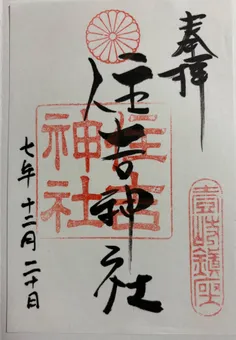 奉拝
住吉神社
住吉神社
壹岐鎮座
七年 十二月 二十日